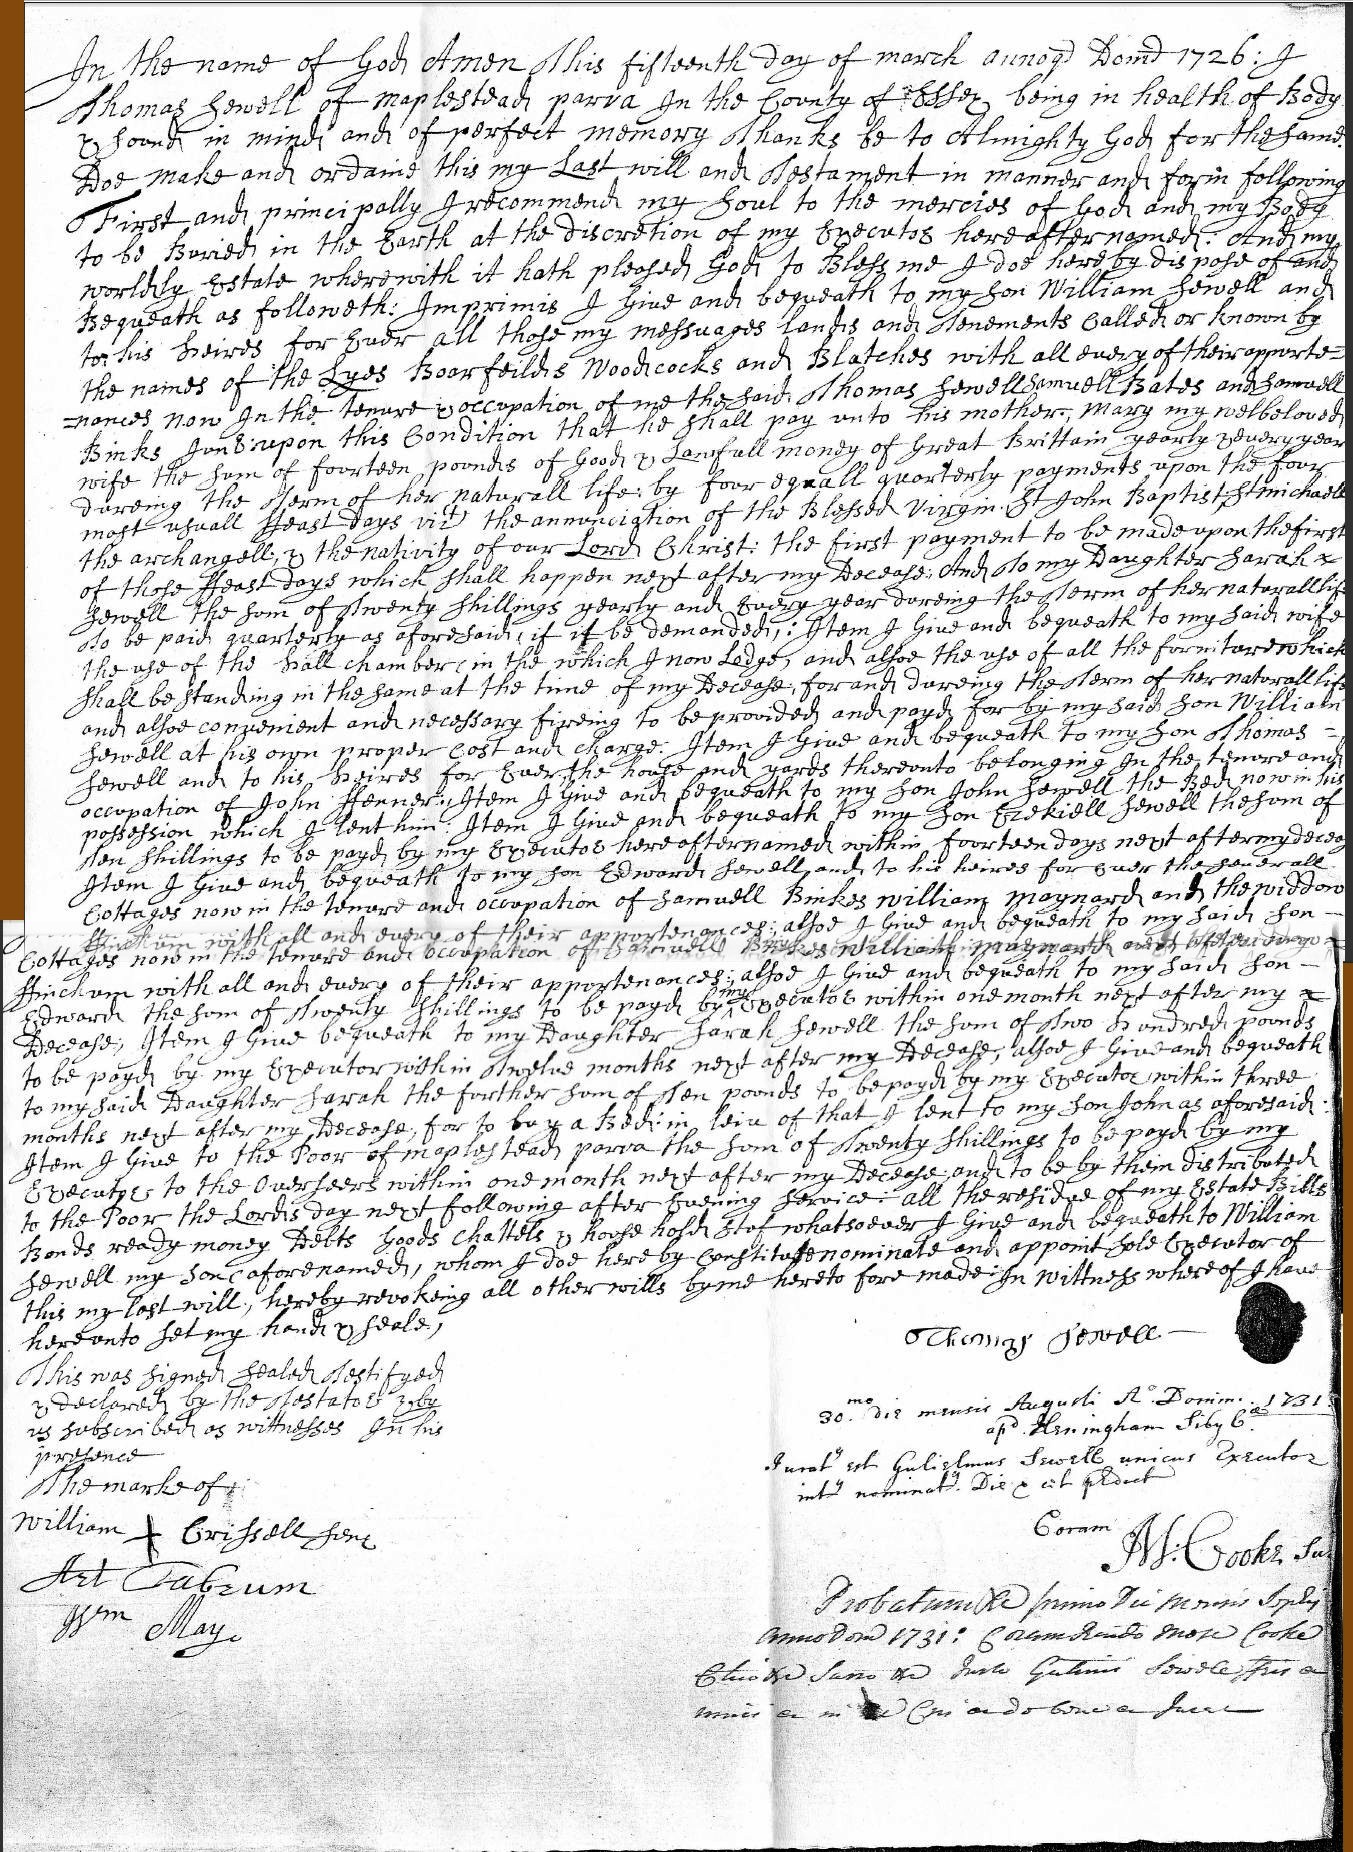 In the name of God Amen This fifteenth day of march annoqd Domd 1726: I
Thomas Sewell of maplestead parva In the County of Essex being in health of Body
& sound in mind and of perfect memory Thanks be to Almighty God for the same
Doe make and ordaine this my Last will and Testament in manner and form following
First and principally I recommend my soul to the mercies of God and my Body
to be Buried in the Earth at the discretion of my Executor hereafter named: And my
worldly Estate wherewith it hath pleased God to Bless me I doe hereby dispose of and
Bequeath as followeth: Imprimis I Give and bequeath to my son William Sewell and
to his heires for Ever all those my messuages lands and Tenements Called or known by
the names of the Lyes Boarfeilds Woodcocks and Blatches with all every of their apporte=
=nances now In the tenure & occupation of me the said Thomas Sewell Samuell Bates and Samuell
Binks Junr upon this Condition that he shall pay unto his mother, Mary my welbeloved
wife the sum of fourteen pounds of Good & Lawfull money of Great Brittain yearly & every year
dureing the Term of her naturall life: by four equall quarterly payments upon the four
most usuall ffeast days vizt the annunciation of the Blessed Virgin St John Baptist, St michaell
the archangell, & the nativity of our Lord Christ: the first payment to be made upon the first
of those ffeast days which shall happen next after my Decease: And to my Daughter Sarah
Sewell the sum of Twenty shillings yearly and Every year dureing the Term of her naturall life
to be paid quarterly as aforesaid, if it be demanded,: Item I Give and bequeath to my said wife
the use of the hall chamber (in the which I now Lodge, and alsoe the use of all the furniture which
shall be standing in the same at the time of my Decease, for and dureing the Term of her naturall life
and alsoe convenient and necessary fireing to be provided and payd for by my said son William
Sewell at his own proper Cost and charge: Item I Give and bequeath to my son Thomas =
Sewell and to his heires for Ever, the house and yards thereunto belonging In the tenure and
occupation of John ffenner:, Item I Give and bequeath to my son John Sewell the Bed now in his
possession which I lent him: Item I Give and bequeath to my son Ezekiell Sewell the sum of
Ten shillings to be payd by my Executor hereafter named within fourteen days next after my deceas
Item I Give and bequeath to my son Edward Sewell and to his heires for ever the severall
Cottages now in the tenure and occupation of Samuell Binkes william maynard and the widdow
ffinckum with all and every of their apportenances:, alsoe I Give and bequeath to my said son —
Cottages now in the tenure and occupation of Samuell Binkes William maynard and
ffinchum with all and every of their apportenances:, alsoe I Give and bequeath to my said son —
Edward the sum of Twenty shillings to be payd by my Executor within one month next after my
Decease, Item I Give bequeath to my Daughter Sarah Sewell the sum of Two Hundred pounds
to be payd by my Executor within Twelve months next after my Decease, alsoe I Give and bequeath
to my said Daughter Sarah the further sum of Ten pounds to be payd by my Executor within three
months next after my Decease, for to buy a Bed: in leiu of that I lent to my son John as aforesaid:
Item I Give to the Poor of maplestead parva the sum of Twenty shillings to be payd by my
Executor to the Overseers within one month next after my Decease, and to be by them distributed
to the Poor the Lords day next following after Evening Service: all the residue of my Estate Bills
Bonds ready money Debts Goods Chattels & house hold Stuf whatsoever I Give and bequeath to William
Sewell my son (aforenamed, whom I doe hereby Constitute nominate and appoint sole Executor of
this my last will, hereby revokeing all other wills by me heretofore made: In wittness whereof I have
hereunto set my hand & seale,
Thomas Sewell —
This was signed sealed Testifyed
& declared by the Testator & by
us subscribed as wittnesses In his
presence
The marke of
William + Crissell senr
Art Tabrum
Wm May
30mo. die mensis Augusti Ao. Domini. 1731
apd. Heningham Siby Ca.
Jurats est Gulielmus Sewell unicus Executor
ints nominats. Die & ... predict
Coram
M: Cooke Sur
Probatum primo Die mensis
anno Dom 1731: Coram Cooke
Sewell